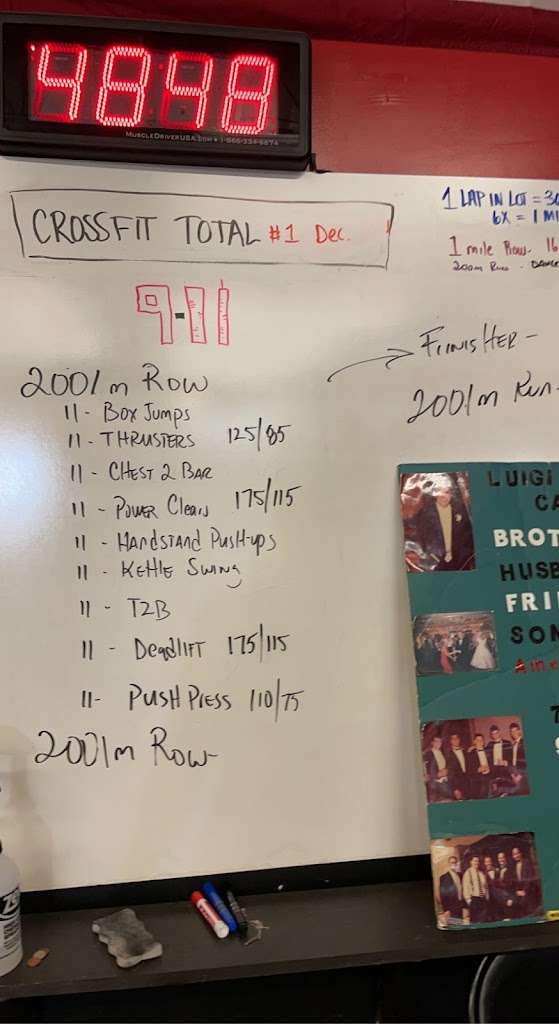 4848
MUSCLEDRIVERUSA.COM • 1-866-334-6674
CROSSFIT TOTAL #1 Dec.
1 LAP IN LOT = 30
6X = 1 MI
1 mile Row. 16
200m Run -
9-11
FINISHER -
2001m Run -
2001m Row
11 - Box Jumps
11 - THRUSTERS 125/85
11 - CHEST 2 BAR
11 - Power Clean 175/115
11 - Handstand Push-ups
11 - Kettle Swing
11 - T2B
11 - Deadlift 175/115
11 - PUSH PRESS 110/75
2001m Row-
LUIGI
CA
BROT
HUSB
FRI
SON
Ame
7